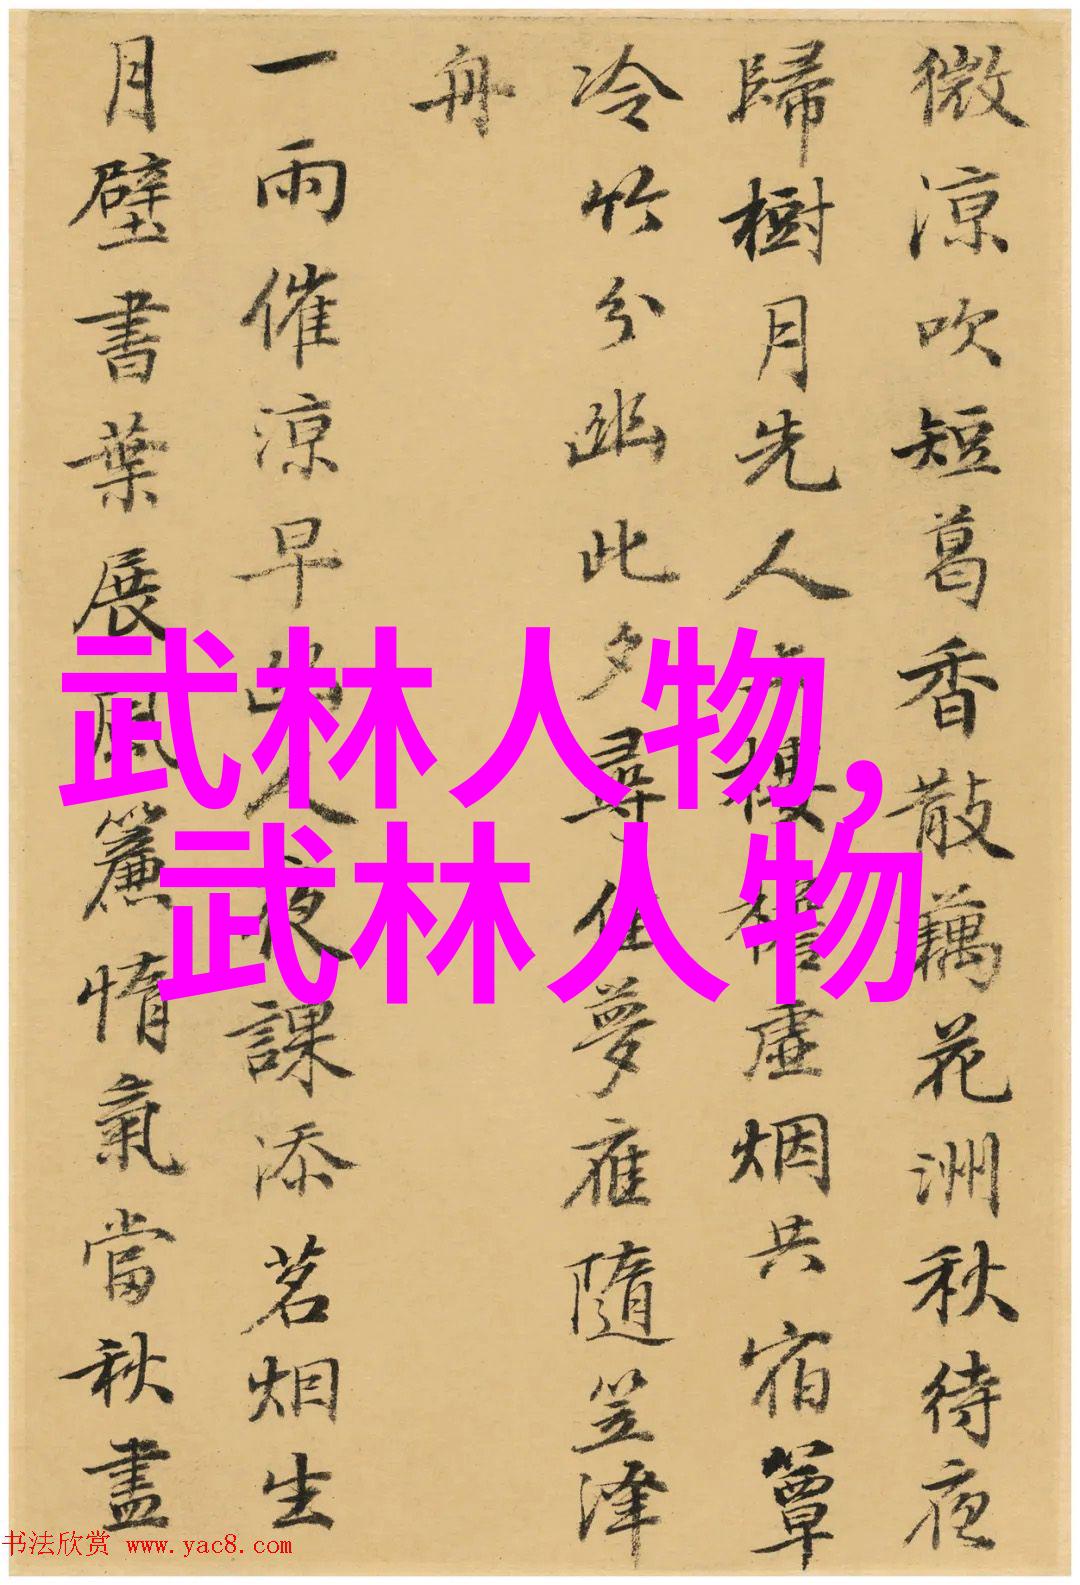 微涼吹短葛香散藕花洲秋待夜
歸樹月先人上樓檐虛烟共宿簟
冷竹分幽此夕尋佳夢隨笠澤
舟
一雨催涼早幽人夜課添茗烟生
月壁書葉展風簾惰氣當秋盡
武林人物,
武林人物
书法欣赏 www.yac8.com